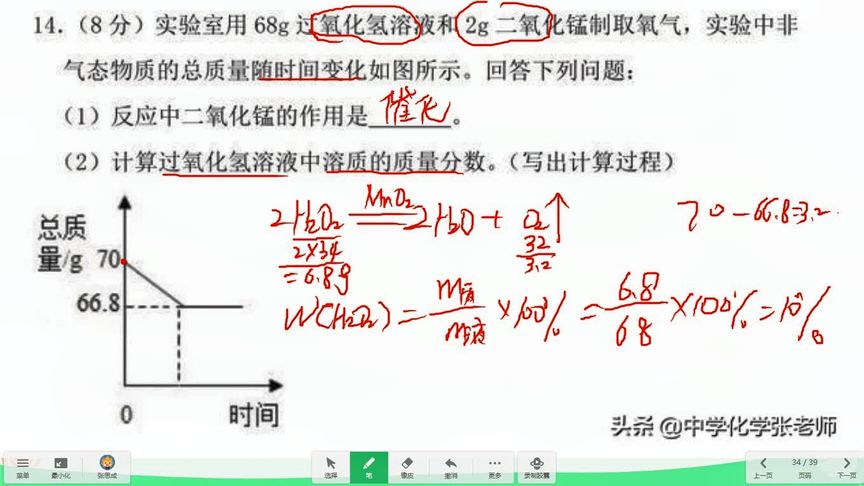 14.（8 分）实验室用 68g 过氧化氢溶液和 2g 二氧化锰制取氧气，实验中非
气态物质的总质量随时间变化如图所示。回答下列问题：
（1）反应中二氧化锰的作用是 催化 。
（2）计算过氧化氢溶液中溶质的质量分数。（写出计算过程）
MnO₂
2H₂O₂ ═ 2H₂O + O₂↑
70-66.8=3.2
2×34 32
=6.8g 3.2
W(H₂O₂) = m质/m液 ×100% = 6.8/68 ×100% = 10%
总质
量/g 70
66.8
0 时间
头条 @中学化学张老师
菜单 最小化 张思成 选择 笔 橡皮 撤消 更多 录制胶囊 上一页 34 / 39 页码 下一页